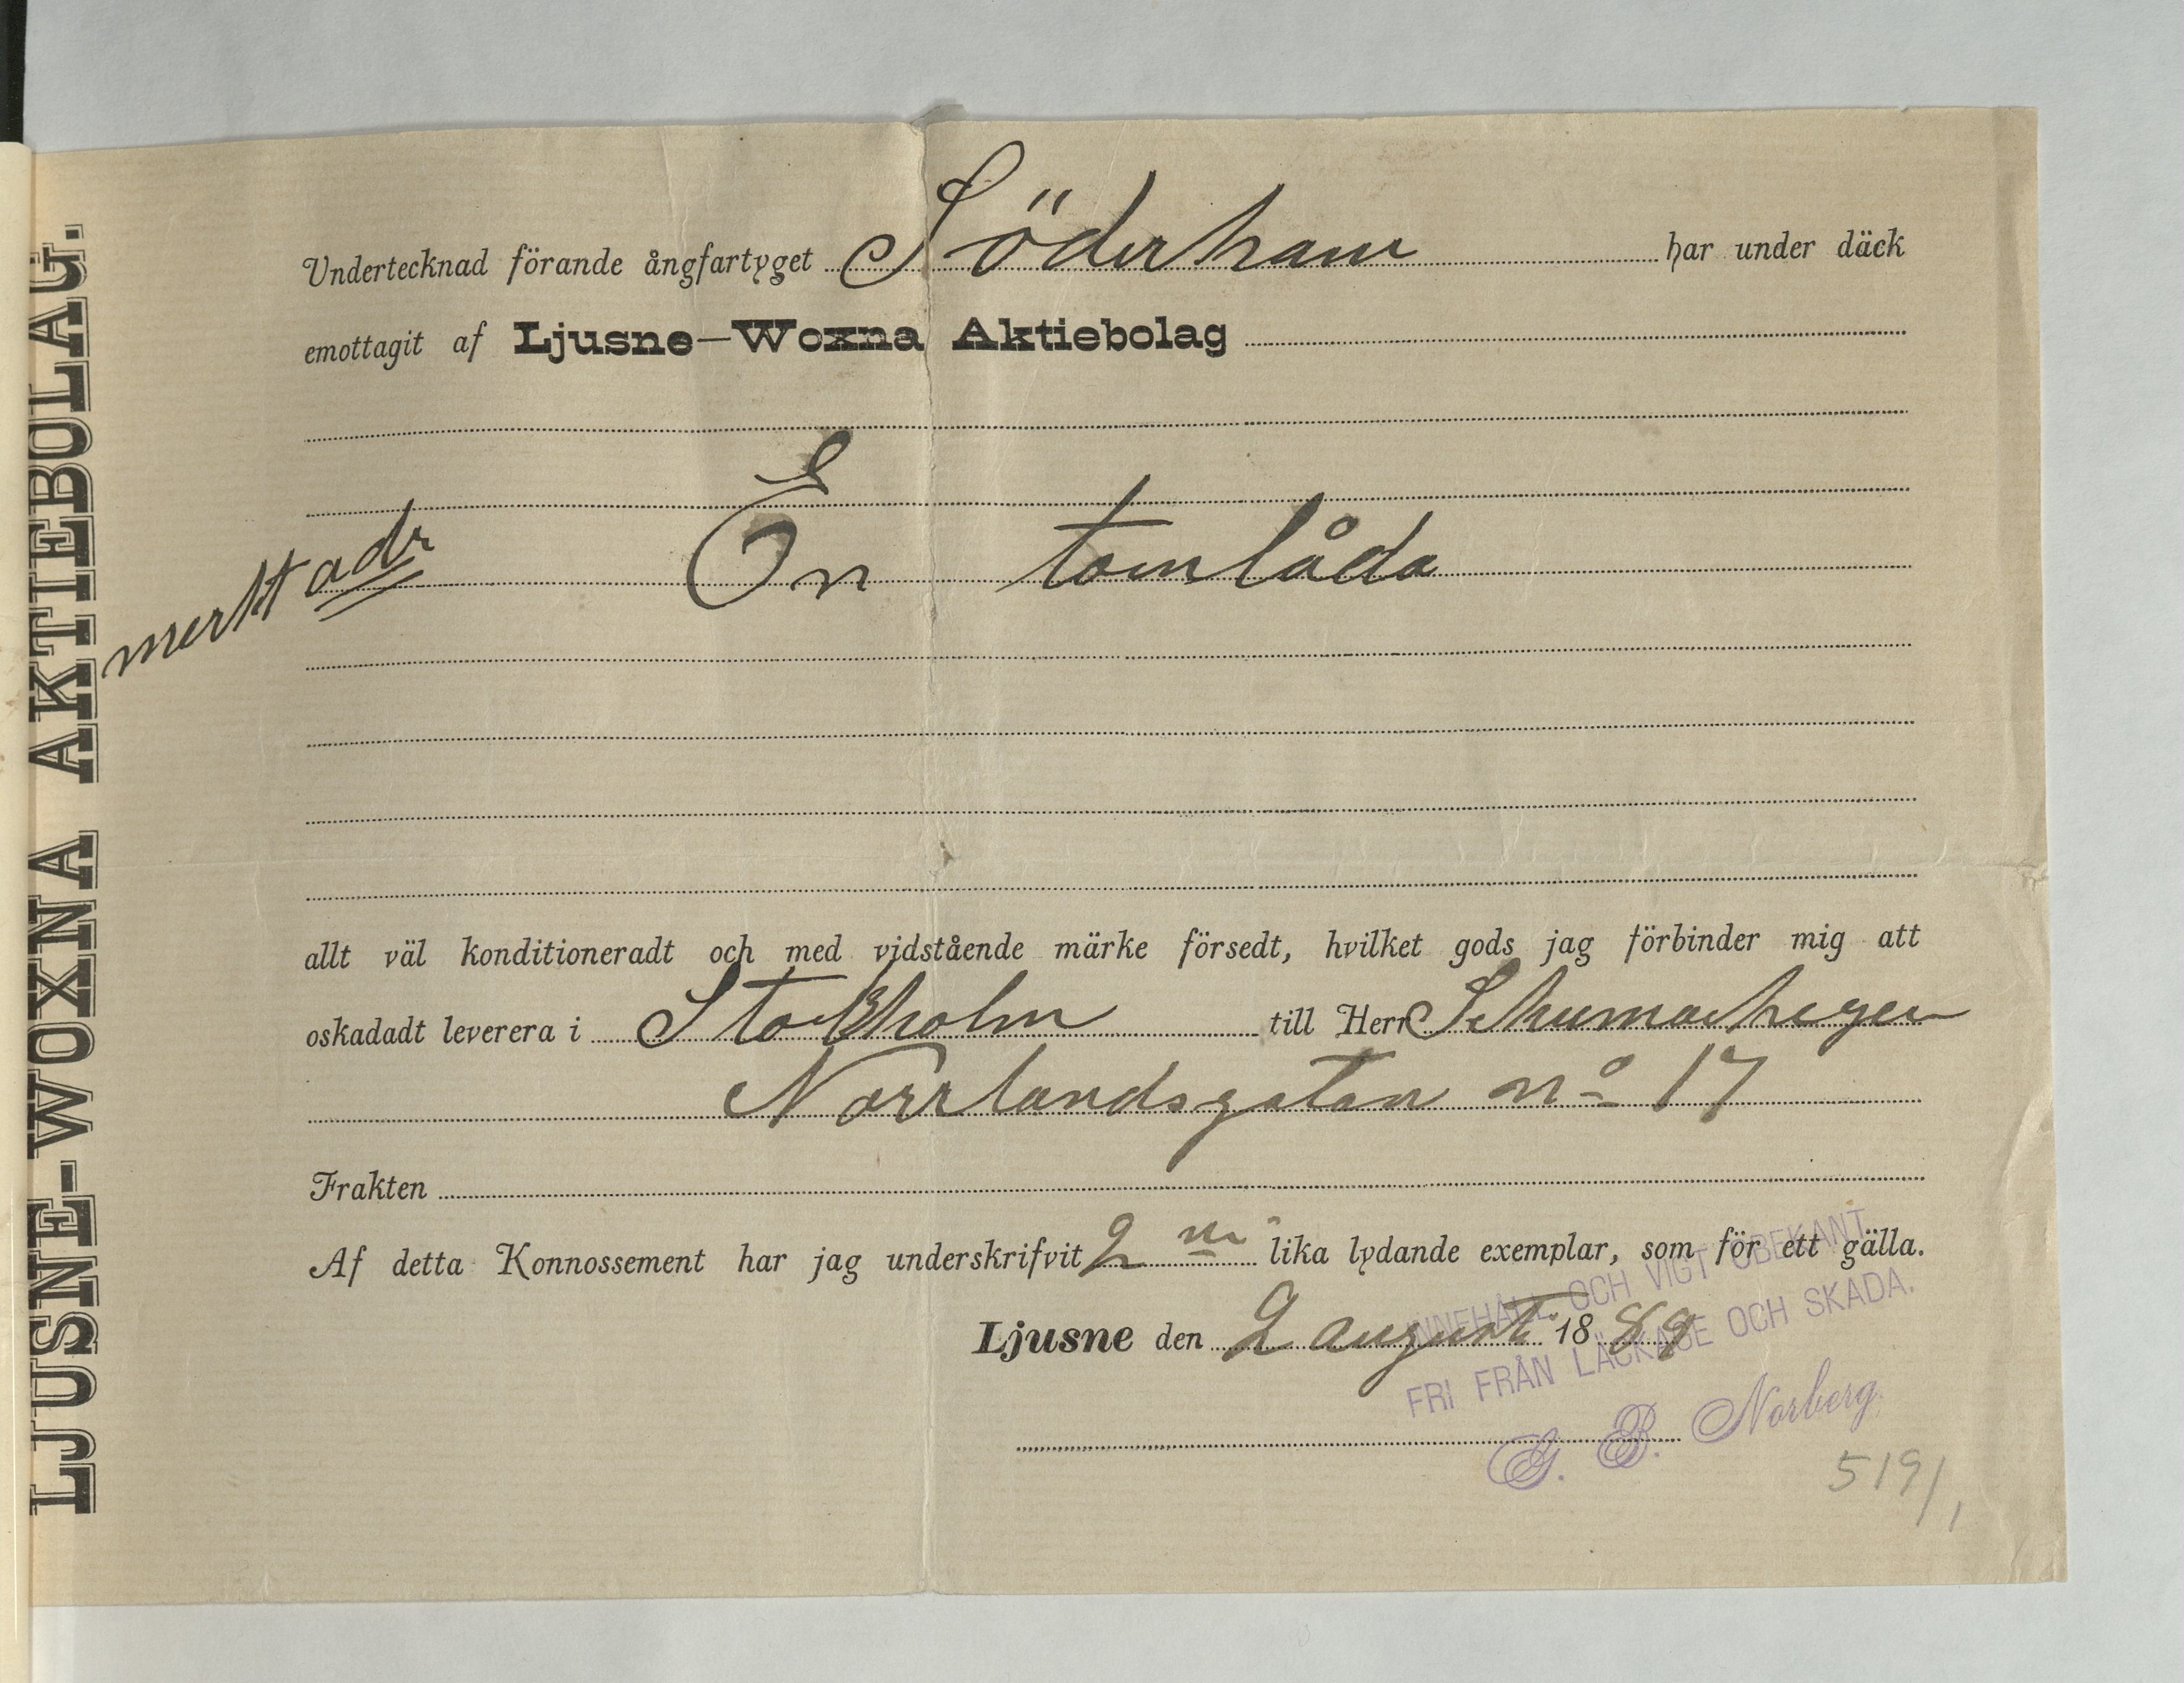 LJUSNE-WOXNA AKTIEBOLAG.
Undertecknad förande ångfartyget Söderhamn har under däck
emottagit af Ljusne-Woxna Aktiebolag
merkt adr
En tomlåda
allt väl konditioneradt och med vidstående märke försedt, hvilket gods jag förbinder mig att
oskadadt leverera i Stockholm till Herr
Norrlandsgatan no 17
Frakten
Af detta Konnossement har jag underskrifvit 2 lika lydande exemplar, som för ett gälla.
Ljusne den 2 augusti 1889
INNEHÅLL OCH VIGT OBEKANT
FRI FRÅN LÄCKAGE OCH SKADA.
G. B. Norberg.
519/1